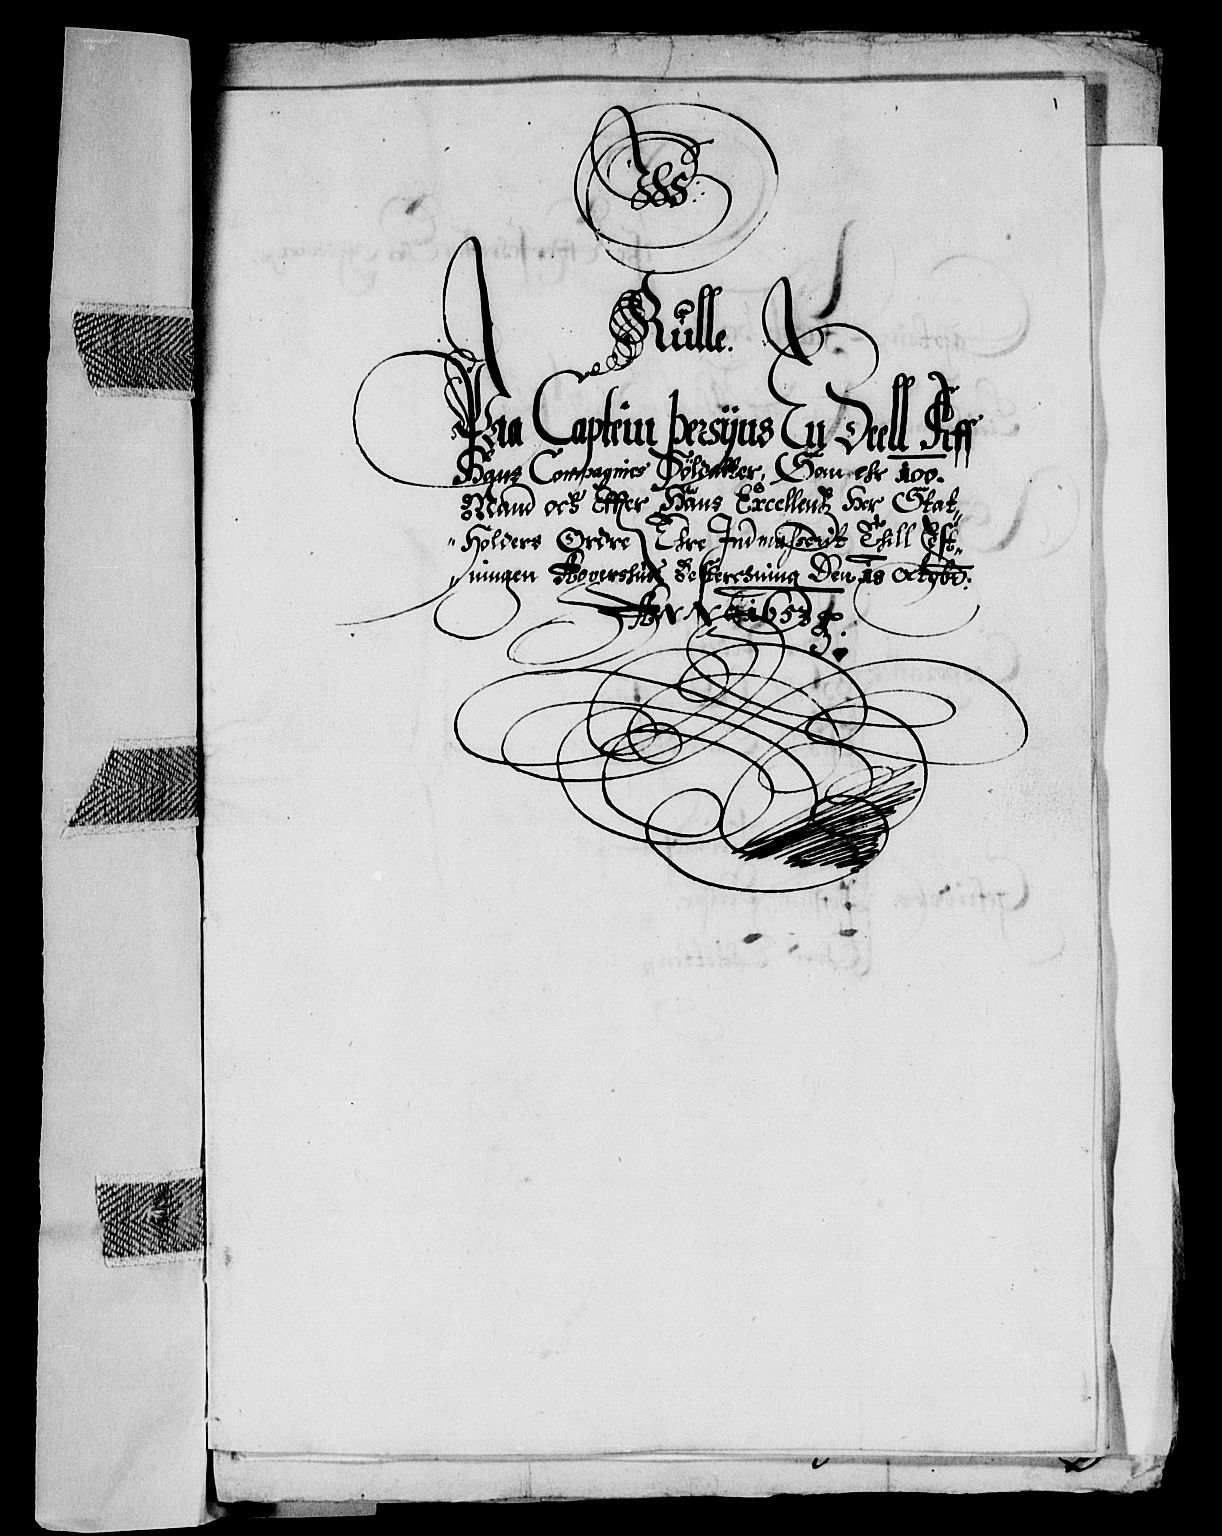 Rulle.
Paa Captein persÿns En Deell Aff
Hans Compagnies Söldatter, Som ehr 100.
Mand och Effer Hans Excellentz Her Stat„
„Holders Ordre Ehre Indmønstrit Thill Fest„
„ningen Aggershus Besterchning Den 18 Octob:
Anno 1653